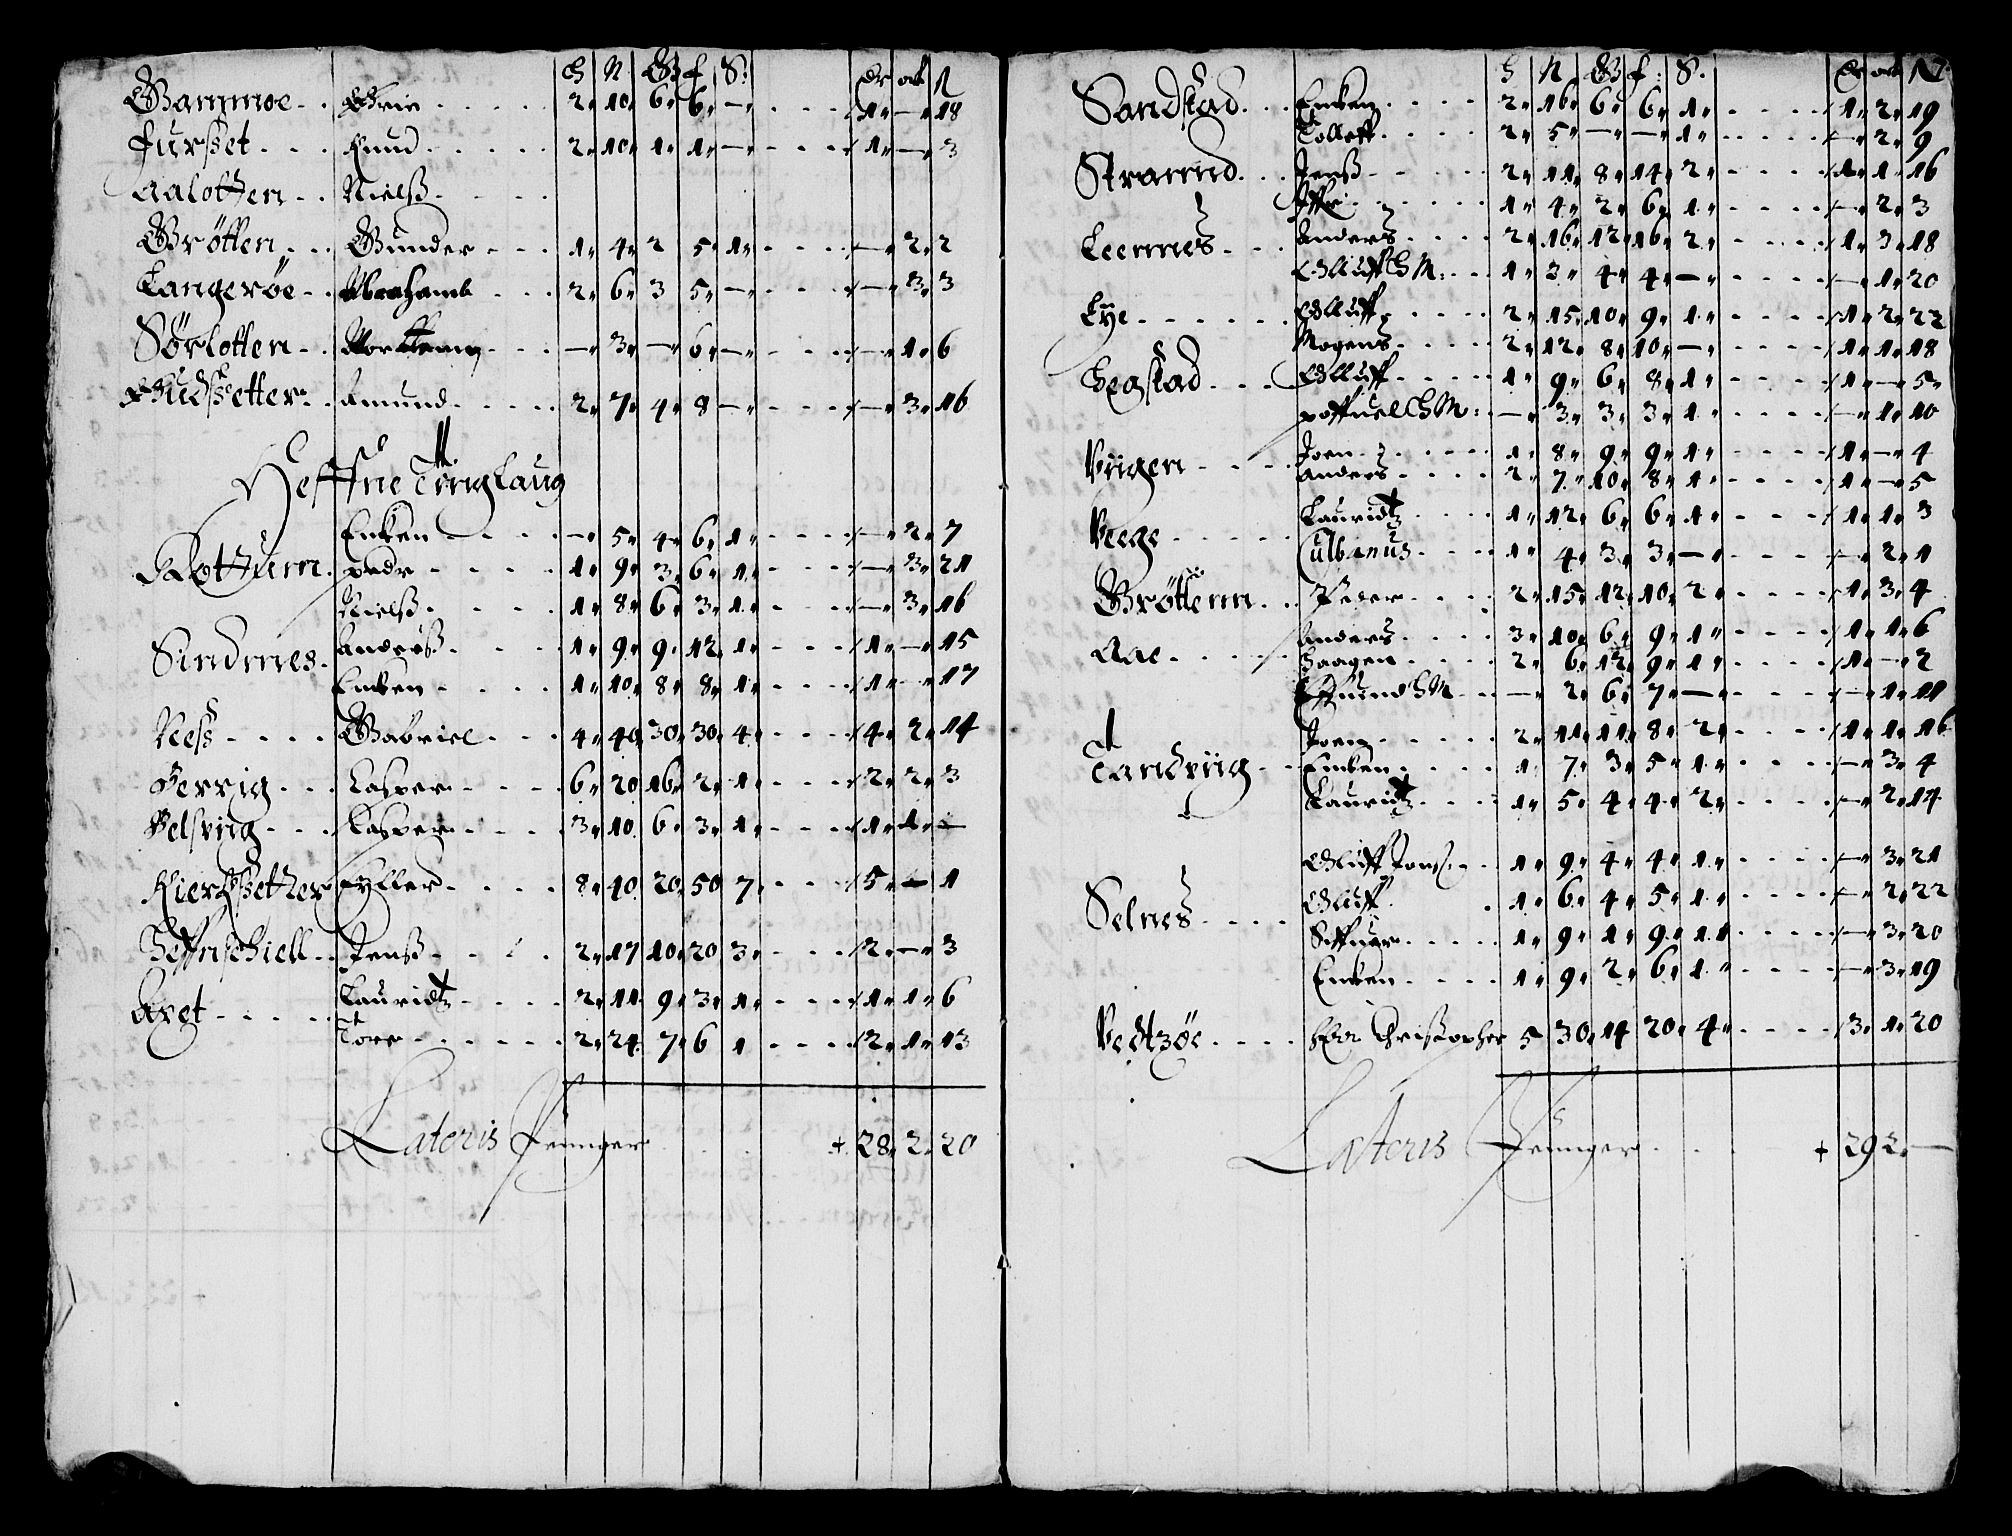 H N G f S. dr ort ß
Gammoe Erie 2 10 6 6 — 1 — 18
Furset Knud 2 10 1 1 — 1 — 3
Aalotten Nielß
Grøtten Gunder 1 4 2 5 1 — 2 2
Langerøe Abraham 2 6 3 5 — — 3 3
Sørlotten Mortten — 3 — 6 — — 1 6
Gudsetter Amund 2 7 4 8 — — 3 16
Heffne Tinglaug
Erichen — 5 4 6 1 — 2 7
Rottum pedr 1 9 3 6 1 — 3 21
Nielß 1 8 6 3 1 — 3 16
Sindnes Anderß 1 9 9 12 1 1 — 15
Erichen 1 10 8 8 1 1 — 17
Ness Gabriel 4 40 30 30 4 4 2 14
Casper 6 20 16 2 1 2 2 3
Velsviig Casper 3 10 6 3 1 1 1 —
Kierchsetther Eyller 8 40 20 50 7 5 — 1
Heffnschiell Jenß 2 17 10 20 3 2 — 3
Lauridtz 2 11 9 3 1 1 1 6
Tore 2 24 7 6 1 2 1 13
Lateris Penger + 28 2 20
H N G f: S. dr ort
Sandstad Erichen 2 16 6 6 1 1 2 19
Tolleff 2 5 — — 1 — 2 9
Strømnd Jenß 2 11 8 14 2 1 1 16
Iffr 1 4 2 6 1 — 2 3
Leernes Anders 2 16 12 16 2 1 3 18
Olluff H M: 1 3 4 4 — — 1 20
Lye Olluff 2 15 10 9 1 1 2 22
Mogens 2 12 8 10 — 1 1 18
Hegstad Olluff 1 9 6 8 1 1 — 5
H M: — 3 3 3 1 — 1 10
Viigen Joen 1 8 9 9 1 1 — 4
Anders 2 7 10 8 1 1 — 5
Veege Lauridtz 1 12 6 6 1 1 1 3
Culbanus 1 4 3 3 — — 2 1
Grøttem Peder 2 15 12 10 2 1 3 4
Aae Anders 3 10 6 9 1 1 1 6
Haagen 2 6 12 9 1 1 — 2
H M — 2 6 7 — — 1 11
Joen 2 11 11 8 2 1 1 16
Tandviig Erichen 1 7 3 5 1 — 3 4
Lauridtz 1 5 4 4 2 — 2 14
Olluff Jonß 1 9 4 4 1 — 3 21
Selnes Olluff 1 6 4 5 1 — 2 22
Siffuer 1 9 1 9 1 — 3 20
Erichen 1 9 2 6 1 — 3 19
Vedtzøe Her Christopher 5 30 14 20 4 3 1 20
Lateris Penger + 29 2 —